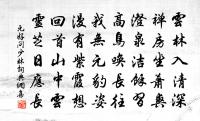 雲林入清深
禪房坐蕭爽
澄泉潔餘習
高鳥喚長往
我無元豹姿
漫有紫霞想
回首山中雲
靈芝日應長
元好問少林詞典網書